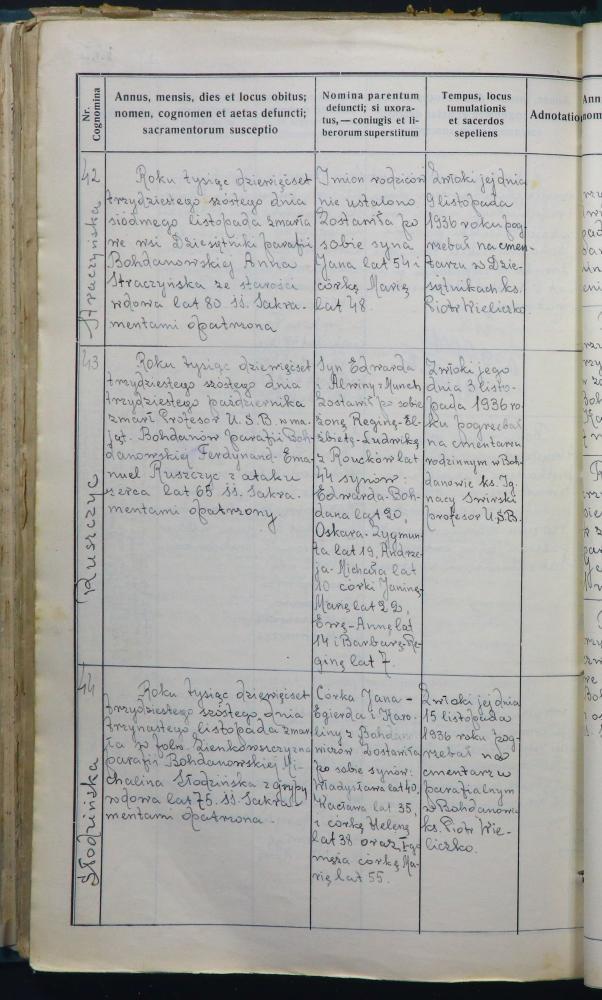 Nr.
Cognomina
Annus, mensis, dies et locus obitus;
nomen, cognomen et aetas defuncti;
sacramentorum susceptio
Nomina parentum
defuncti; si uxora-
tus, — coniugis et li-
berorum superstitum
Tempus, locus
tumulationis
et sacerdos
sepeliens
Adnotatio
42
Straczyńska
Roku tysiąc dziewięćset
trzydziestego szóstego dnia
siódmego listopada zmarła
we wsi Dziesiętniki parafii
Bohdanowskiej Anna
Straczyńska ze starości
wdowa lat 80 śś. Sakra-
mentami opatrzona
Imion rodziców
nie ustalono
Zostawiła po
sobie syna
Jana lat 54 i
córkę Marię
lat 48.
Zwłoki jej dnia
9 listopada
1936 roku pog-
rzebał na cmen-
tarzu w Dzie-
siętnikach ks.
Piotr Wieliczko.
43
Ruszczyc
Roku tysiąc dziewięćset
trzydziestego szóstego dnia
trzydziestego października
zmarł Profesor U.S.B. w ma-
jąt. Bohdanów parafii Boh-
danowskiej Ferdynand-Ema-
nuel Ruszczyc z ataku
serca lat 65 śś. Sakra-
mentami opatrzony.
Syn Edwarda
i Alwiny z Munch
Zostawił po sobie
żonę Reginę-El-
żbietę-Ludwikę
z Rouków lat
44 synów:
Edwarda-Boh-
dana lat 20,
Oskara-Zygmun-
ta lat 19, Andrze-
ja-Michała lat
10 córki Janinę-
Marię lat 22,
Ewę-Annę lat
14 i Barbarę-Re-
ginę lat 7.
Zwłoki jego
dnia 3 listo-
pada 1936 ro-
ku pogrzebał
na cmentarzu
rodzinnym w Boh-
danowie ks. Ig-
nacy Świrski
profesor U.S.B.
44
Słodzińska
Roku tysiąc dziewięćset
trzydziestego szóstego dnia
trzynastego listopada zmar-
ła w folw. Zienkowszczyzna
parafii Bohdanowskiej Mi-
chalina Słodzińska z grypy
wdowa lat 75. śś. Sakra-
mentami opatrzona.
Córka Jana-
Egierda i Karo-
liny z Bohdano-
wiczów Zostawiła
po sobie synów:
Władysława lat 40,
Wacława lat 35,
i córkę Helenę
lat 38 oraz I-go
męża córkę Ma-
rię lat 55.
Zwłoki jej dnia
15 listopada
1936 roku pog-
rzebał na
cmentarzu
parafialnym
w Bohdanowie
ks. Piotr Wie-
liczko.